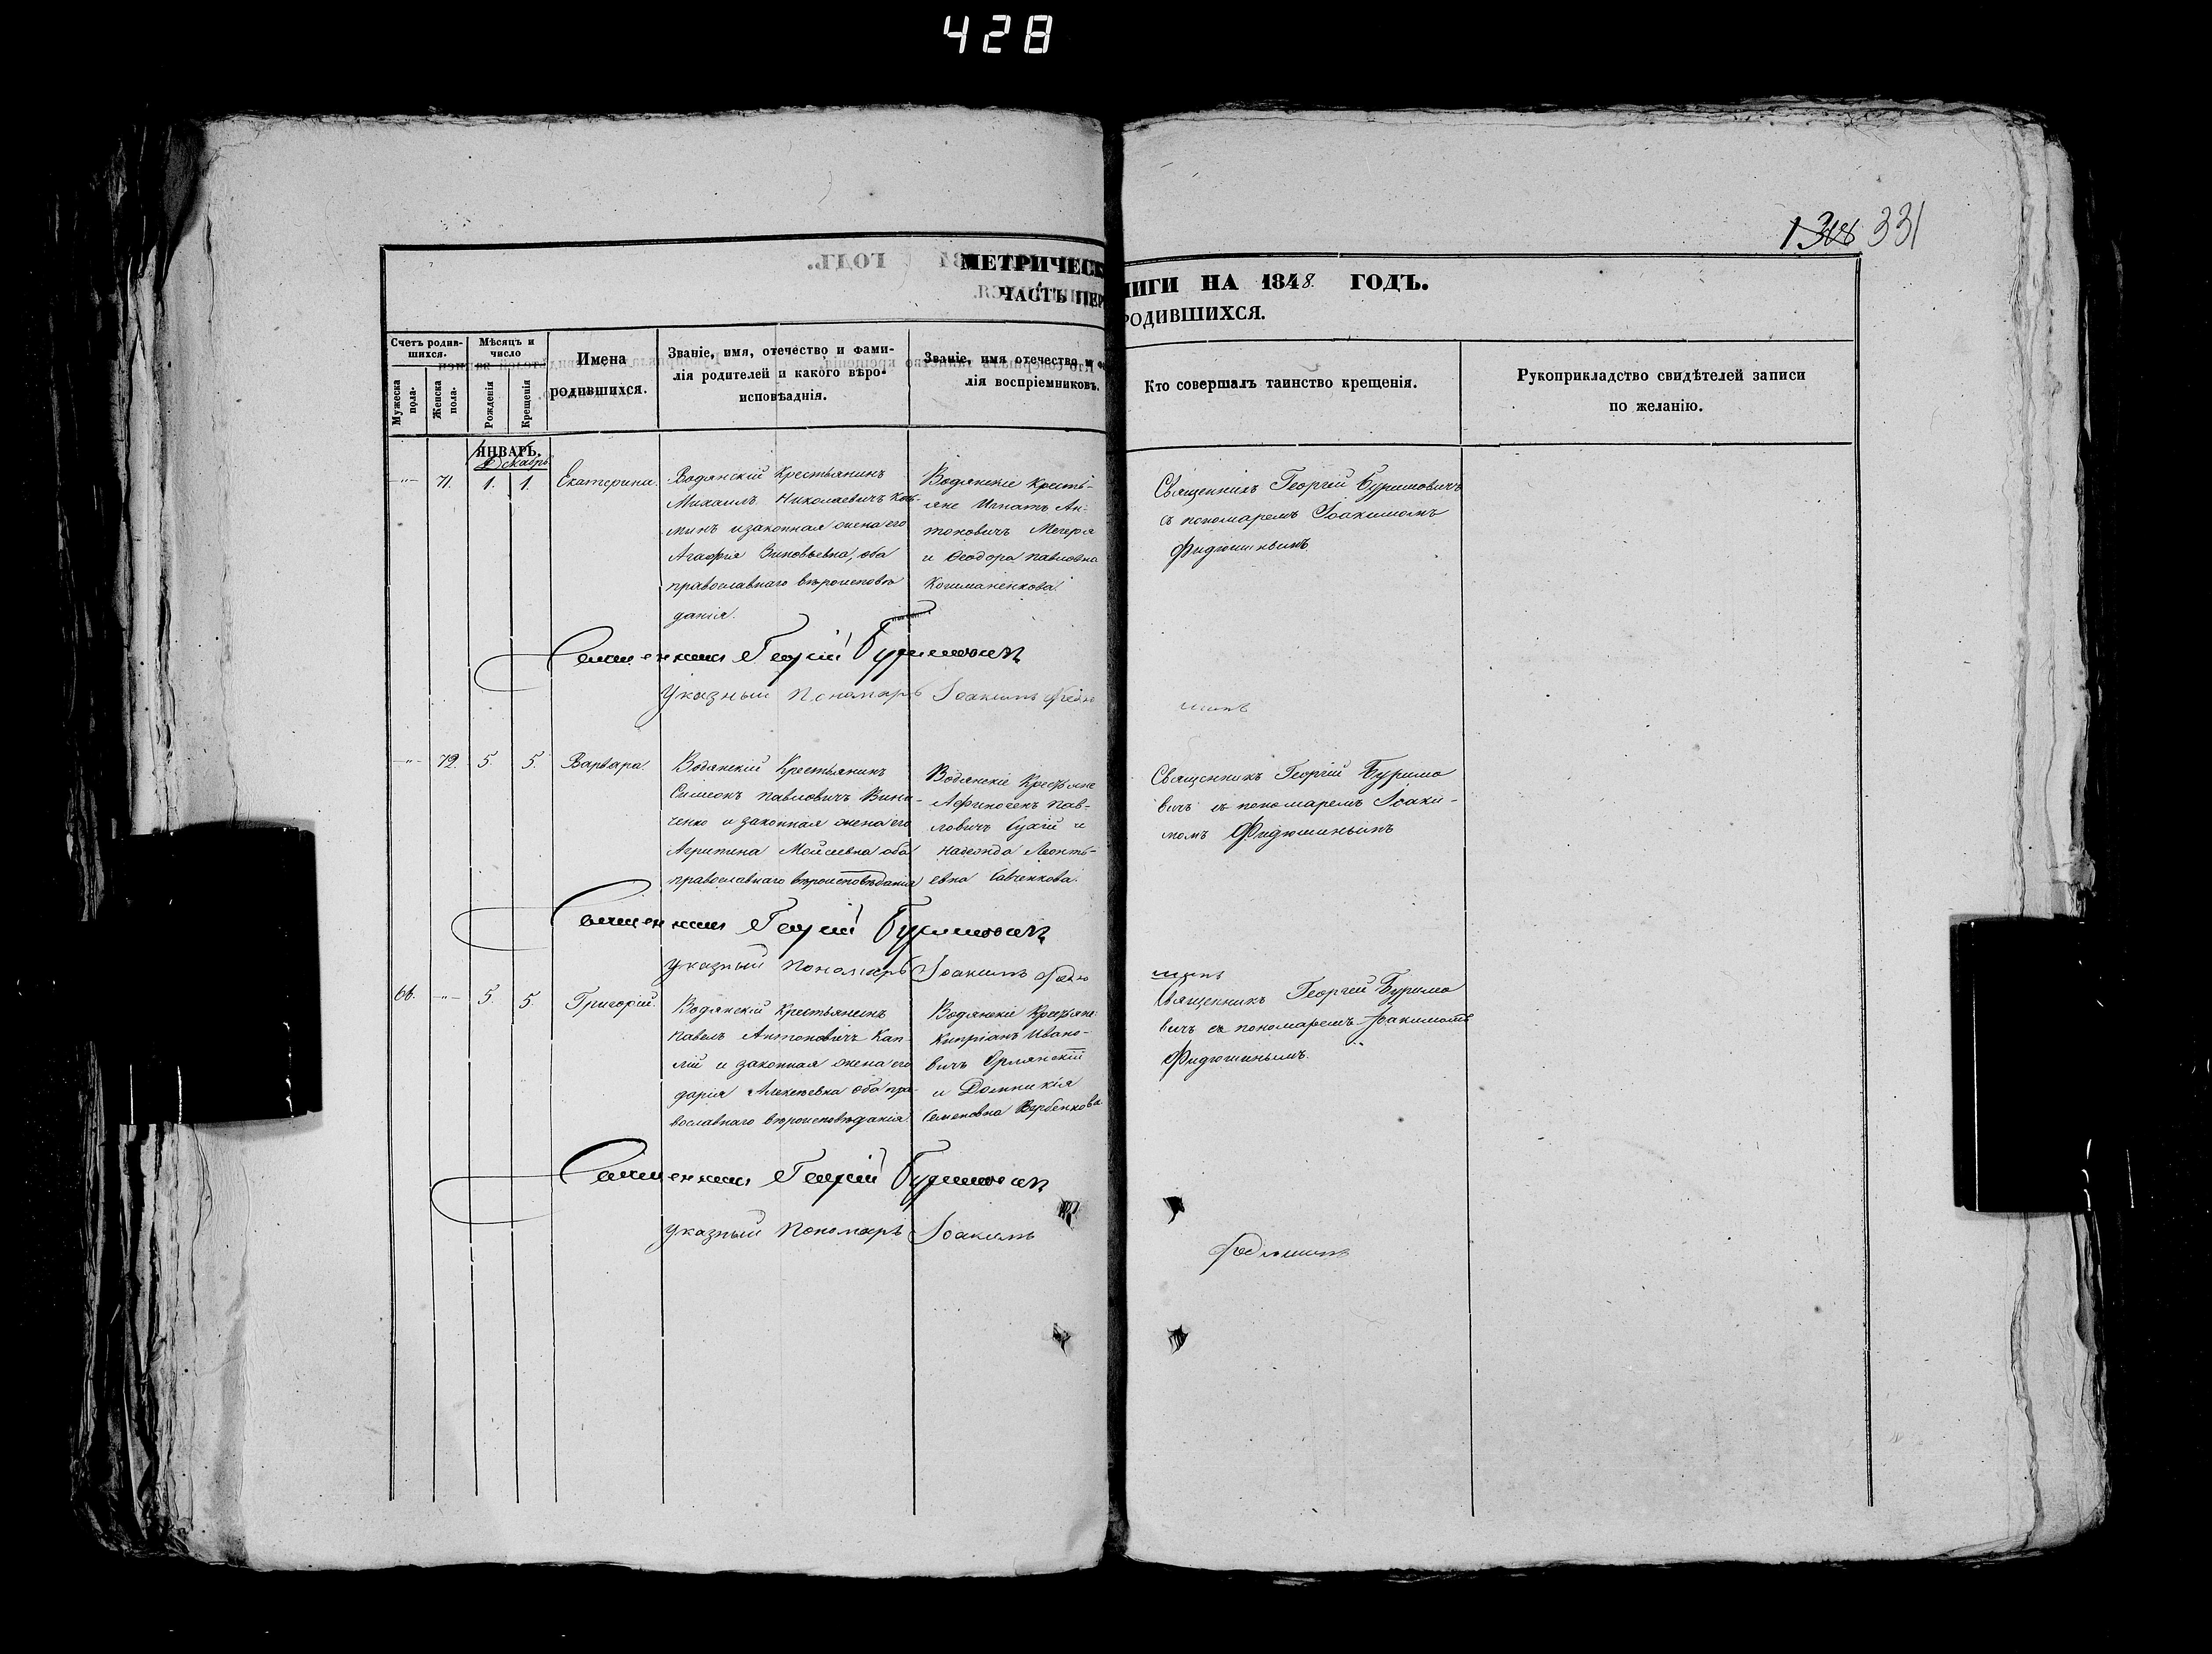 428
1318 331
МЕТРИЧЕСК
ЧАСТЬ ПЕР
НИГИ НА 1848. ГОДЪ.
РОДИВШИХСЯ.
Счетъ родив-
шихся.
Мужеска пола.
Женска пола.
Мѣсяцъ и
число
Рожденія
Крещенія
Имена
родившихся.
Званіе, имя, отечество и фами-
лія родителей и какого вѣро-
исповѣаднія.
Званіе, имя отечество и
лія воспріемниковъ.
Кто совершалъ таинство крещенія.
Рукоприкладство свидѣтелей записи
по желанію.
ЯНВАРЬ.
Декабрь
-"- 71. 1. 1. Екатерина.
Водянскій Крестьянинъ
Михаилъ Николаевичъ
минъ и законная жена его
Агафія Зиновьевна, оба
православнаго вѣроисповѣ
данія.
Водянскіе Кресть-
яне Игнатъ Ан-
тоновичъ Мегера
и Ѳеодора Павловна
Кошманенкова.
Священникъ Георгій Буримовичъ
съ пономаремъ Іоакимомъ
Фидюшинымъ
Священникъ Георгій Буримовичъ
Указный Пономарь Іоакимъ Федю
шинъ
-"- 72. 5. 5. Варвара.
Водянскій Крестьянинъ
Симеонъ Павловичъ Вини-
ченко и законная жена его
Агрипина Моисеевна оба
православнаго вѣроисповѣданія
Водянскіе Крестьяне
Афиногенъ Пав-
ловичъ Сухій и
Надежда Леонть-
евна Савченкова.
Священникъ Георгій Буримо
вичъ съ пономаремъ Іоаки-
момъ Фидюшинымъ
Священникъ Георгій Буримовичъ
Указный Пономарь Іоакимъ Федю
шинъ
66. -"- 5. 5. Григорій.
Водянскій Крестьянинъ
Павелъ Антоновичъ Кап-
лій и законная жена его
Дарія Алексѣевна оба пра-
вославнаго вѣроисповѣданія.
Водянскіе Крестьяне
Кипріанъ Ивано-
вичъ Орлянскій
и Домникія
Семеновна Вербенкова
Священникъ Георгій Буримо
вичъ съ пономаремъ Іоакимомъ
Фидюшинымъ.
Священникъ Георгій Буримовичъ
Указный Пономарь Іоакимъ
Федюшинъ